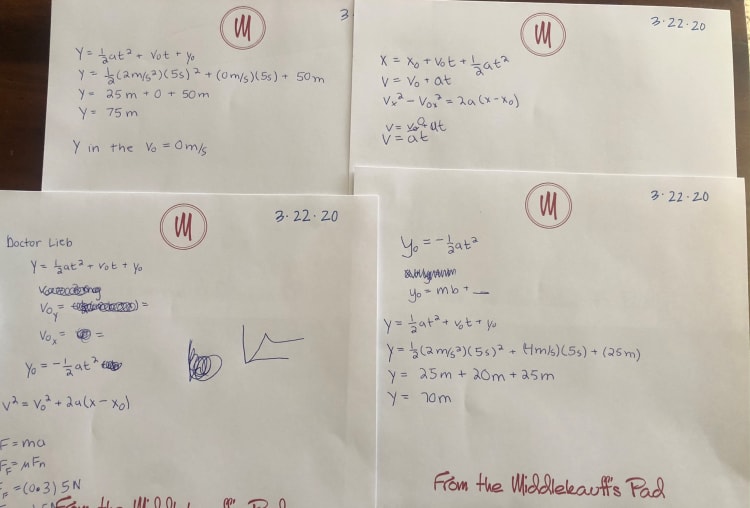 M
3.
y = ½at² + v₀t + y₀
y = ½(2m/s²)(5s)² + (0m/s)(5s) + 50m
y = 25m + 0 + 50m
y = 75m
y in the v₀ = 0m/s
M
3·22·20
x = x₀ + v₀t + ½at²
v = v₀ + at
vₓ² - v₀ₓ² = 2a(x-x₀)
v = v₀ + at
v = at
M
3·22·20
Doctor Lieb
y = ½at² + v₀t + y₀
v₀y = =
v₀ₓ = =
y₀ = -½at²
v² = v₀² + 2a(x-x₀)
F = ma
F_F = μFn
F = (0.3) 5N
From the Middlekauff's Pad
M
3·22·20
y₀ = -½at²
y₀ = mb + __
y = ½at² + v₀t + y₀
y = ½(2m/s²)(5s)² + (4m/s)(5s) + (25m)
y = 25m + 20m + 25m
y = 70m
From the Middlekauff's Pad